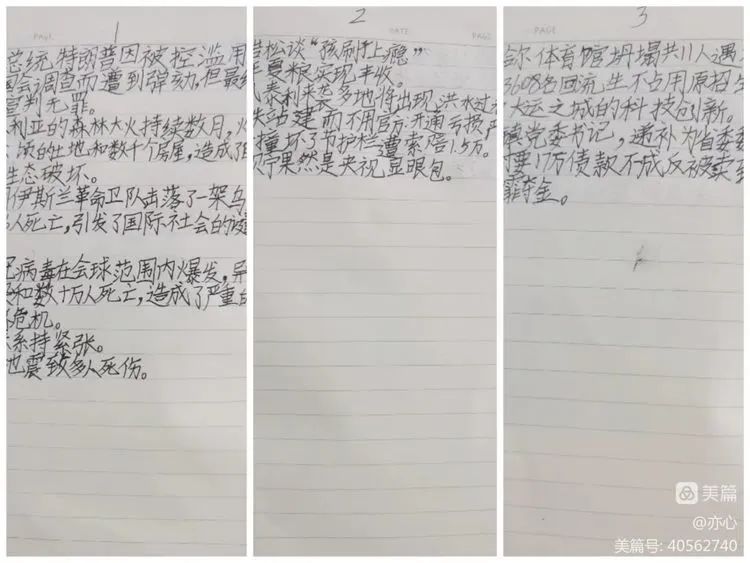 1
总统特朗普因被控滥用
会调查而遭到弹劾,但最
宣判无罪。
利亚的森林大火持续数月,火
的土地和数千个房屋,造成了
生态破坏。
伊斯兰革命卫队击落了一架乌
人死亡,引发了国际社会的
病毒在会球范围内爆发,导
和数十万人死亡,造成了严重的
危机。
系持紧张。
地震致多人死伤。
2
岩松谈“孩刷上瘾”
夏粮实现丰收。
泰利来袭多地将出现洪水过
站建而不用官方开通亏损严
撞坏了节护栏遭索赔1.5万。
果然是央视显眼包。
3
尔体育馆坍塌共11人遇
3608名回流生不占用原招生
大运之城的科技创新。
镇党委书记,递补为省委委
要17万债款不成反被卖
金。
美篇
@亦心
美篇号: 40562740